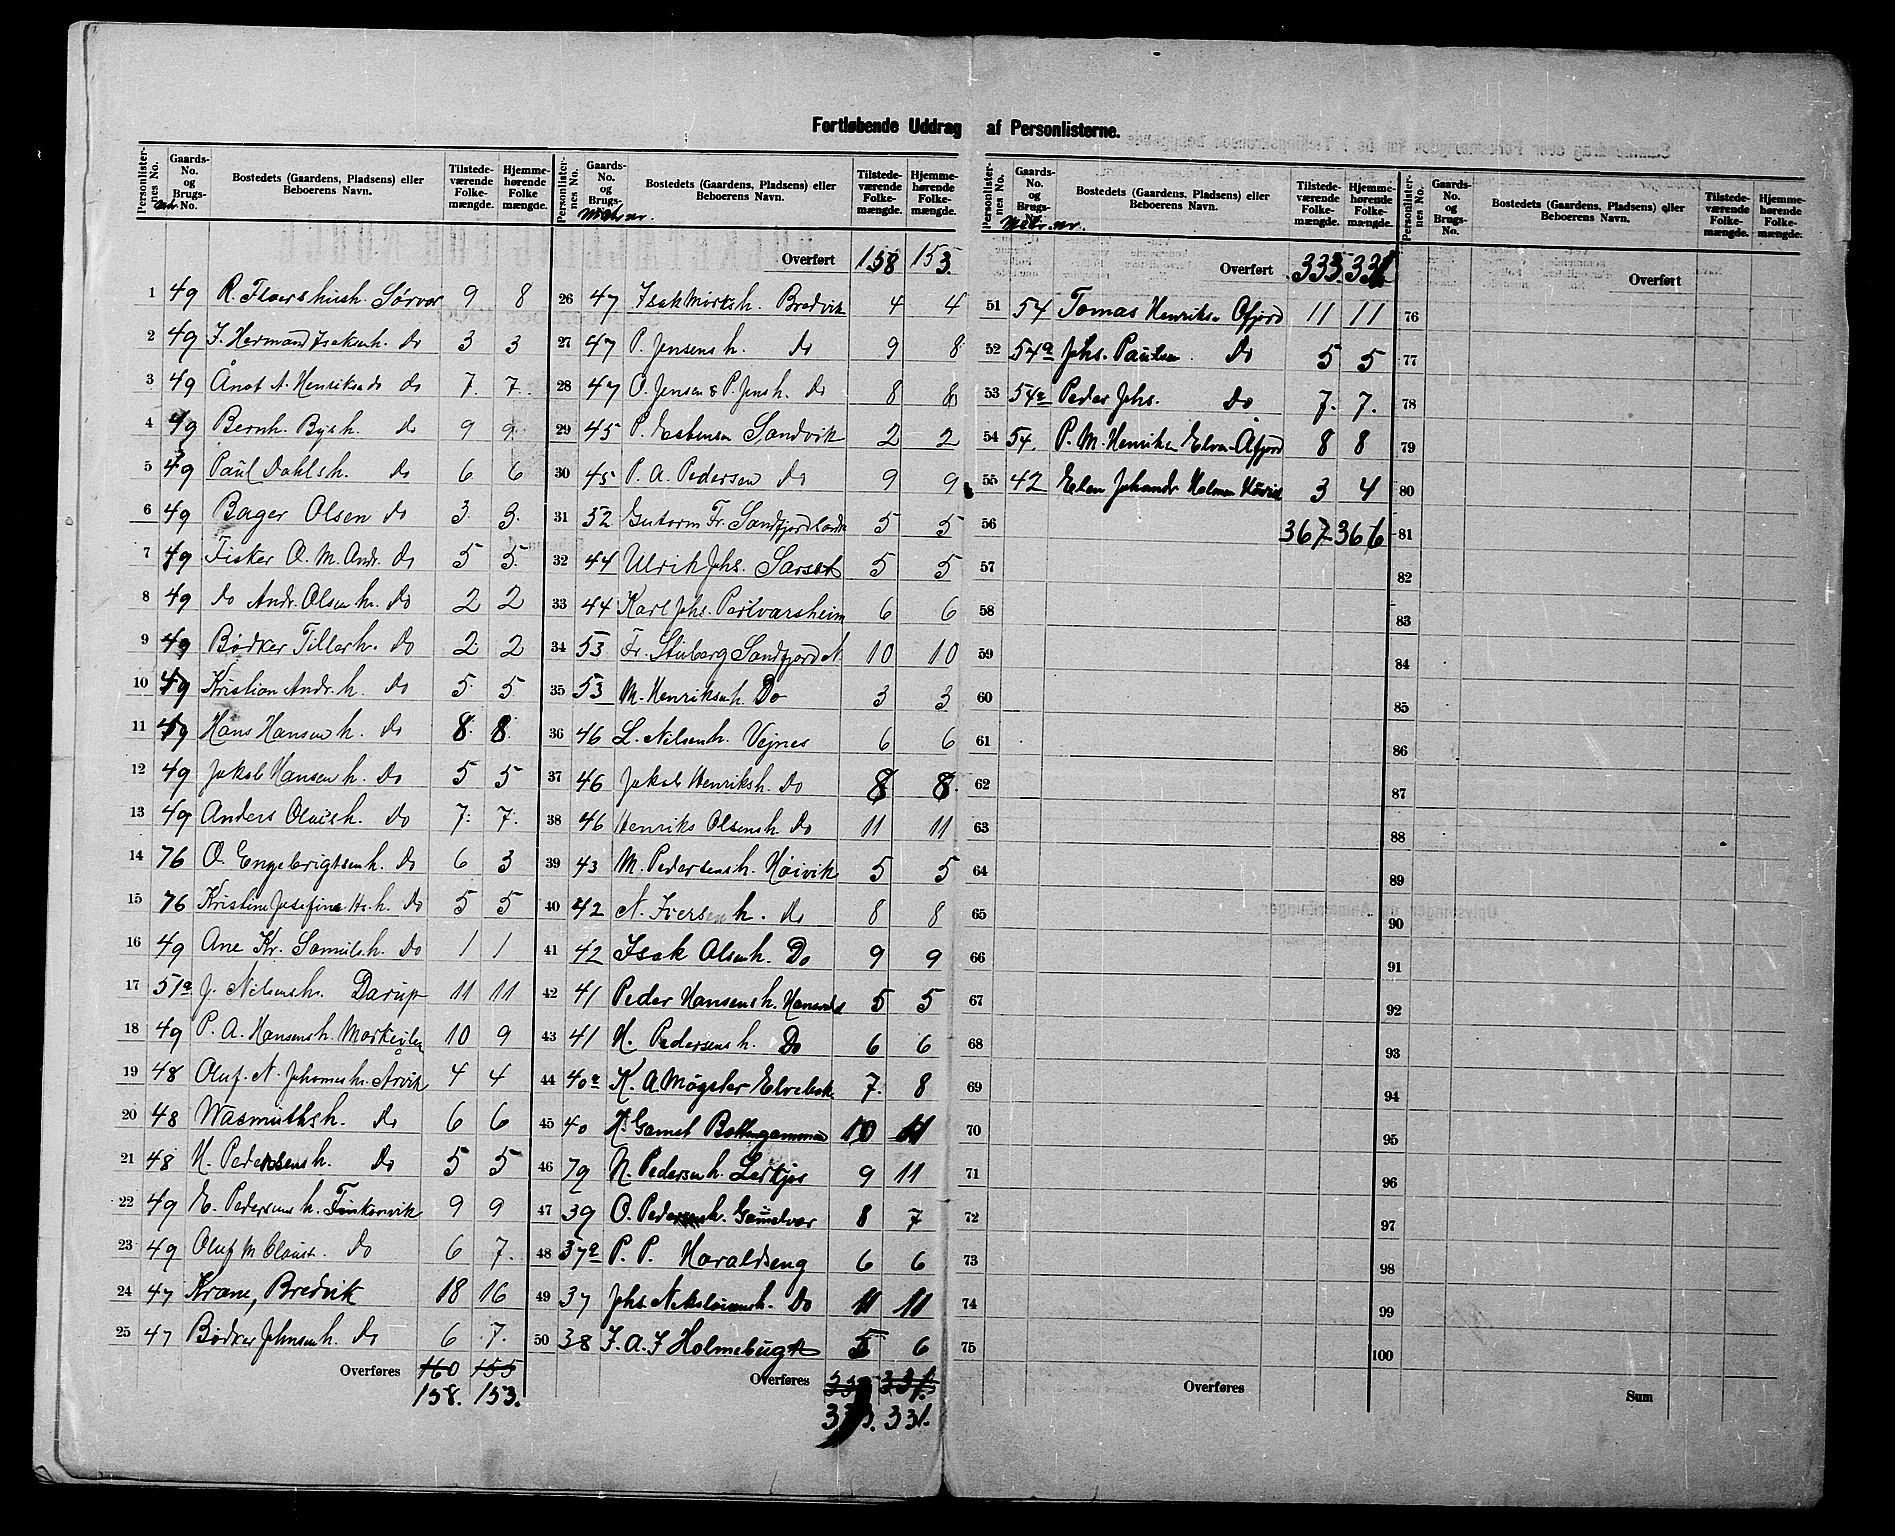 Fortløbende Uddrag af Personlisterne.
Personlister-nes No. Gaards-No. og Brugs-No. Bostedets (Gaardens, Pladsens) eller Beboerens Navn. Tilstede-værende Folke-mængde. Hjemme-hørende Folke-mængde.
1 49 R. 9 8
2 49 J. Herman Isaksenh. do 3 3
3 49 A. Henriksens do 7. 7.
4 49 Bernh. do 9 9
5 49 Paul Dahlsh. do 6 6
6 49 Bager Olsen do 3. 3.
7 49 Fisker O. M. Andr. do 5 5.
8 49 do Andr. Olsen h. do 2 2
9 49 Bødker Tillerh. do 2 2
10 49 Kristian Andr. h. do 5. 5
11 49 Hans Hansen h. do 8. 8.
12 49 Jakob Hansen h. do 5 5
13 49 Anders Olaish. do 7. 7.
14 76 O. Engebrigtsenh. do 6 3
15 76 Kristine Josefine Hs. h. do 5 5
16 49 Ane Kr. Samuelsh. do 1 1
17 51a J. Nilsensh. Darup 11 11
18 49 P. A. Hansensh. 10 9
19 48 Oluf. N. Årvik 4 4
20 48 Wasmuthsh. do 6 6
21 48 H. Pedersensh. do 5 5
22 49 E. Pedersens h. Finkonvik 9 9
23 49 Oluf M. do 6 7.
24 47 Krane, Bredvik 18 16
25 47 Bødker Johnsenh. do 6 7.
Overføres 160 155
158. 153.
Personlister-nes No. Gaards-No. og Brugs- Matr. nr. Bostedets (Gaardens, Pladsens) eller Beboerens Navn. Tilstede-værende Folke-mængde. Hjemme-hørende Folke-mængde.
Overført 158 153
26 47 Isak Bredvik 4 4
27 47 P. Jensensh. do 9 8
28 47 O. Jensen & P. Jensh. do 8 8
29 45 P. Esbensen Sandvik 2 2
30 45 P. A. Pedersen do 9 9
31 52 Gutorm Fr. 5 5
32 44 Ulrik Jhs. 5 5
33 44 Karl Jhs. 6 6
34 53 Fr. Stuberg Sandfjord N. 10 10
35 53 M. Henriksenh. Do 3 3
36 46 L. Nilsenh. Vejnes 6 6
37 46 Jakob Henriksh. Do 8 8.
38 46 Henriks Olsensh. Do 11 11
39 43 M. Pedersensh. Høivik 5 5
40 42 N. Iversen h. do 8 8
41 42 Isak Olsenh. Do 9 9
42 41 Peder Hansensh. 5 5
43 41 H. Pedersensh. Do 6 6
44 40a K. A. Møgster 7. 8
45 40 10 11
46 79 N. Pedersenh. 9 11
47 39 O. Pedersensh. 8 7
48 37a P. P. Haraldseng 6 6
49 37 Jhs. Do 11 11
50 38 J. A. J. Holmebugt 5 6
Overføres 331.
331.
Personlister-nes No. Gaards-No. og Brugs-No. Matr. nr. Bostedets (Gaardens, Pladsens) eller Beboerens Navn. Tilstede-værende Folke-mængde. Hjemme-hørende Folke-mængde.
Overført 333. 331
51 54 Tomas Henriksn Ofjord 11 11
52 54a Jhs. Paulsen Do 5 5
53 54a Peder Jhs. Do 7. 7.
54 54. P. M. Henriksn 8 8
55 42 Elen 3 4
56 367 366
57
58
59
60
61
62
63
64
65
66
67
68
69
70
71
72
73
74
75
Overføres
Personlister-nes No. Gaards-No. og Brugs-No. Bostedets (Gaardens, Pladsens) eller Beboerens Navn. Tilstede-værende Folke-mængde. Hjemme-hørende Folke-mængde.
Overført
76
77
78
79
80
81
82
83
84
85
86
87
88
89
90
91
92
93
94
95
96
97
98
99
100
Sum